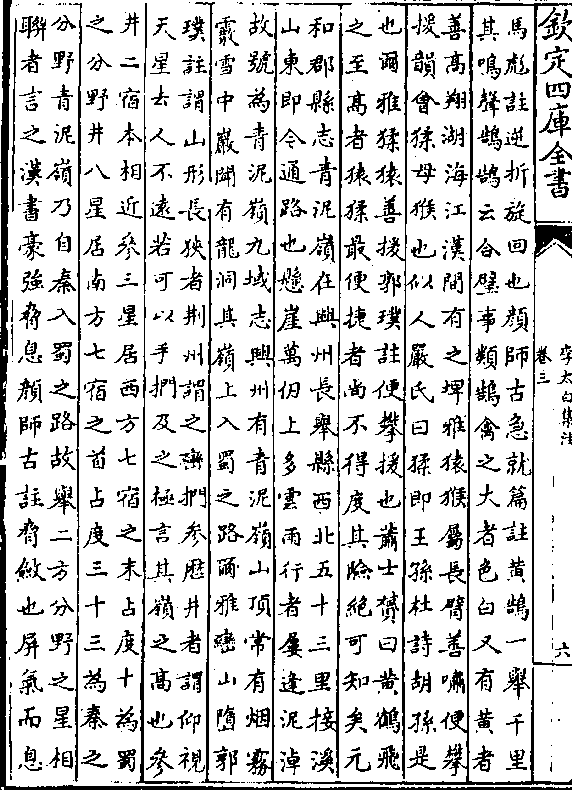 欽定四庫全書
李太白集注
卷三
六
馬彪註逆折旋回也顔師古急就篇註黄鵠一舉千里
其鳴聲鵠鵠云合璧事類鵠禽之大者色白又有黄者
善高翔湖海江漢間有之埤雅猿猴屬長臂善嘯便攀
援韻會猱母猴也似人嚴氏曰猱即王孫杜詩胡孫是
也爾雅猱猿善援郭璞註便攀援也蕭士贇曰黄鶴飛
之至高者猿猱最便捷者尚不得度其險絶可知矣元
和郡縣志青泥嶺在興州長舉縣西北五十三里接溪
山東即今通路也懸崖萬仞上多雲雨行者屢逢泥淖
故號為青泥嶺九域志興州有青泥嶺山頂常有烟霧
霰雪中巖間有龍洞其嶺上入蜀之路爾雅巒山墮郭
璞註謂山形長狹者荆州謂之巒捫參歴井者謂仰視
天星去人不遠若可以手捫及之極言其嶺之高也參
井二宿本相近參三星居西方七宿之末占度十為蜀
之分野井八星居南方七宿之首占度三十三為秦之
分野青泥嶺乃自秦入蜀之路故舉二方分野之星相
聨者言之漢書豪強脅息顔師古註脅斂也屏氣而息